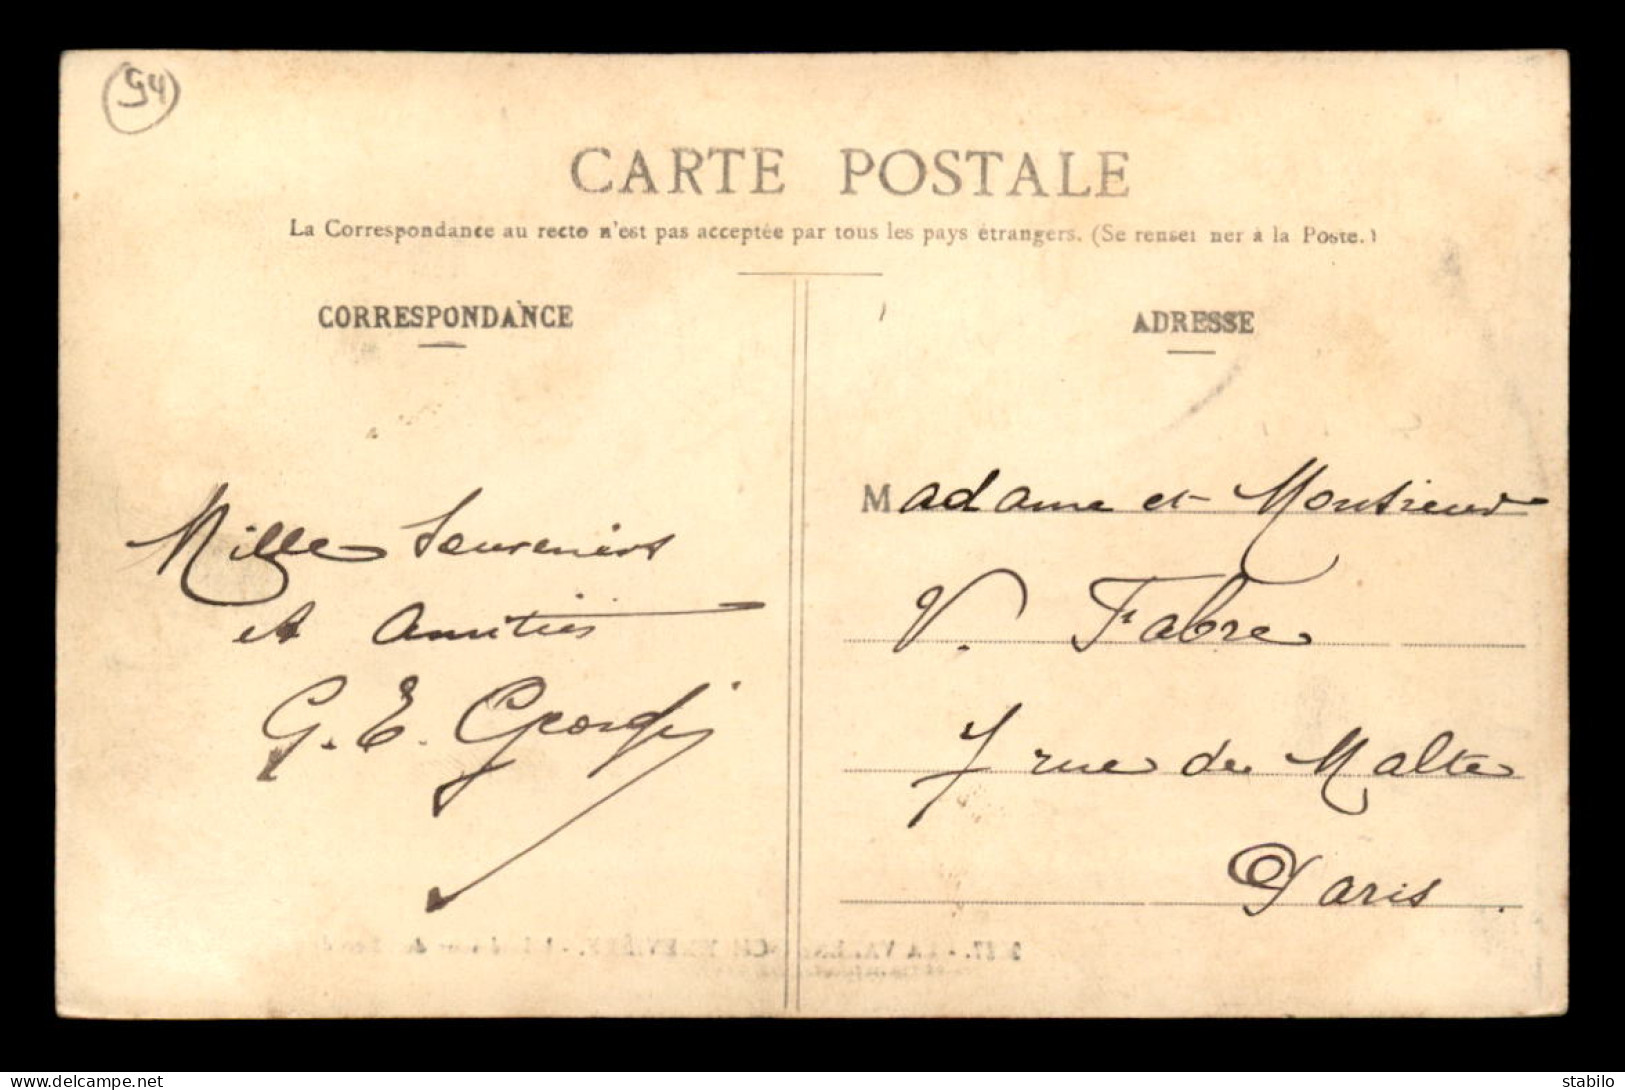 94
CARTE POSTALE
La Correspondance au recto n'est pas acceptée par tous les pays étrangers. (Se rensei ner à la Poste.)
CORRESPONDANCE
Mille Souvenirs
et Amitiés
G. E. Georgi
ADRESSE
Madame et Monsieur
V. Fabre
7 rue de Malte
Paris.
stabilo